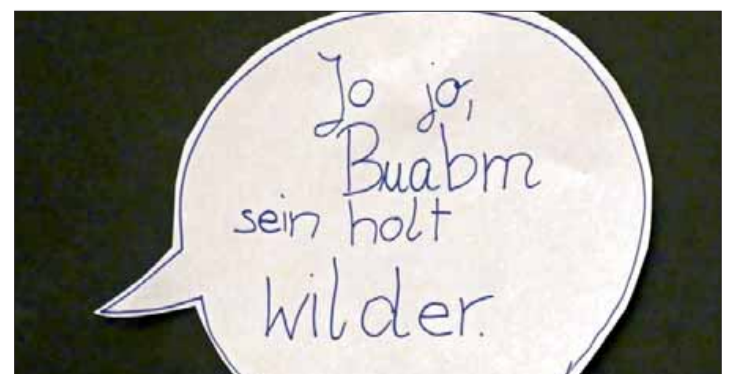 Jo jo,
Buabm
sein holt
wilder.